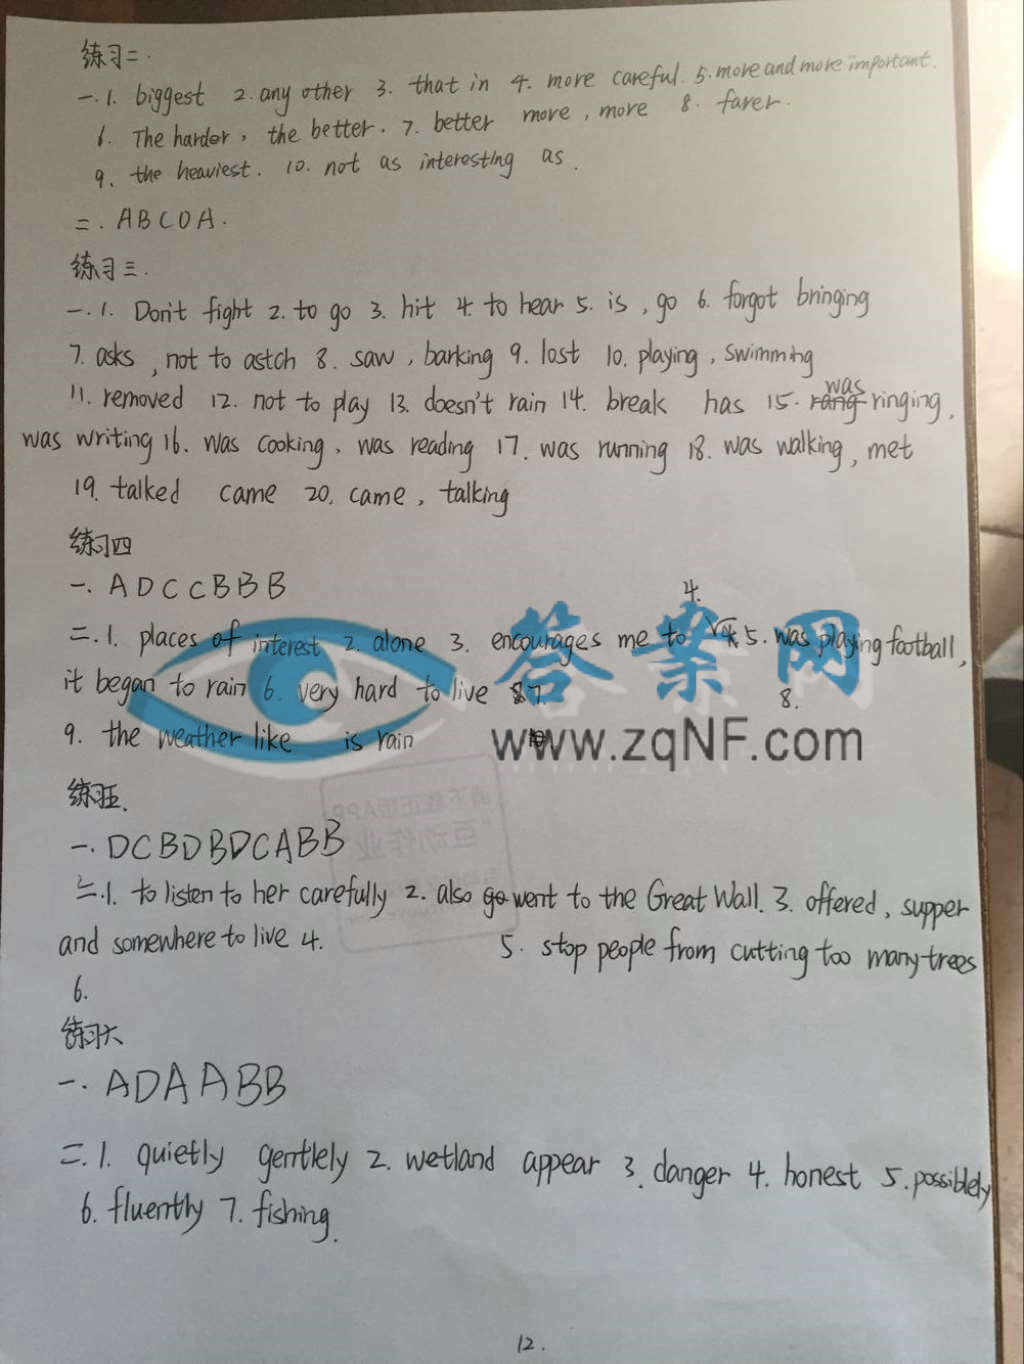 练习二.
一.1. biggest 2. any other 3. that in 4. more careful. 5. more and more important.
6. The harder, the better. 7. better more, more 8. farer.
9. the heaviest. 10. not as interesting as.
二. ABCDA.
练习三.
一.1. Don't fight 2. to go 3. hit 4. to hear 5. is, go 6. forgot bringing
7. asks, not to astch 8. saw, barking 9. lost 10. playing, swimming
11. removed 12. not to play 13. doesn't rain 14. break has 15. rang was ringing,
was writing 16. was cooking, was reading 17. was running 18. was walking, met
19. talked came 20. came, talking
练习四
一. ADCCBBB
二.1. places of interest 2. alone 3. encourages me to 4. 5. was playing football,
it began to rain 6. very hard to live 7. 8.
9. the weather like is rain
答案网
www.zqNF.com
练习五.
一. DCBDBDCABB
二.1. to listen to her carefully 2. also go went to the Great Wall. 3. offered, supper
and somewhere to live 4. 5. stop people from cutting too many trees
6.
练习六
一. ADAABB
二.1. quietly gentlely 2. wetland appear 3. danger 4. honest 5. possiblely
6. fluently 7. fishing.
12.